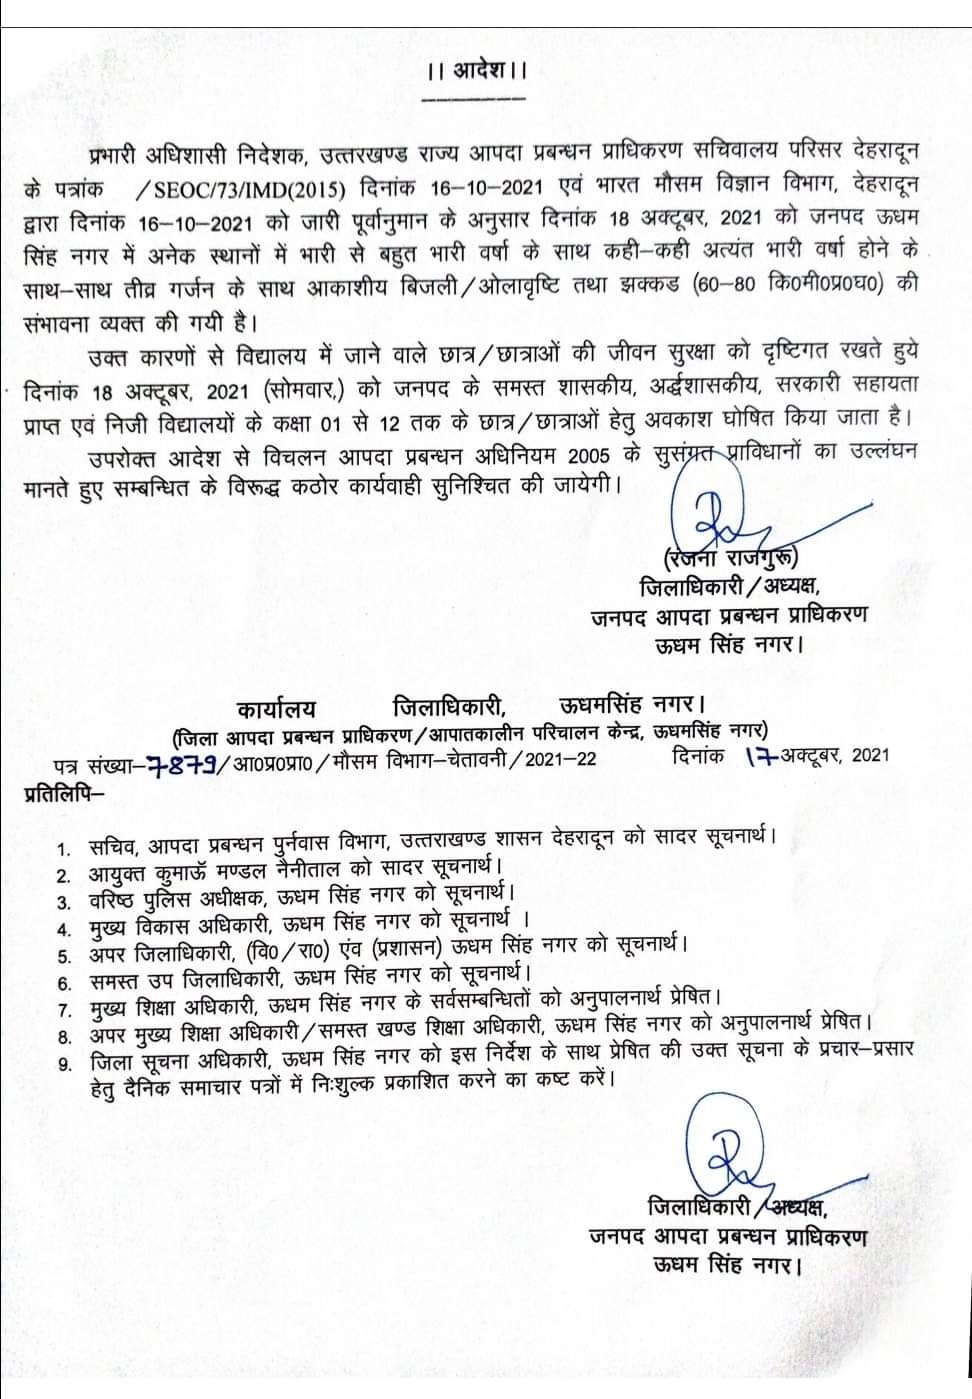 ।। आदेश।।
प्रभारी अधिशासी निदेशक, उत्तरखण्ड राज्य आपदा प्रबन्धन प्राधिकरण सचिवालय परिसर देहरादून
के पत्रांक /SEOC/73/IMD(2015) दिनांक 16–10–2021 एवं भारत मौसम विज्ञान विभाग, देहरादून
द्वारा दिनांक 16–10–2021 को जारी पूर्वानुमान के अनुसार दिनांक 18 अक्टूबर, 2021 को जनपद ऊधम
सिंह नगर में अनेक स्थानों में भारी से बहुत भारी वर्षा के साथ कही–कही अत्यंत भारी वर्षा होने के
साथ–साथ तीव्र गर्जन के साथ आकाशीय बिजली/ओलावृष्टि तथा झक्कड (60–80 कि0मी0प्र0घ0) की
संभावना व्यक्त की गयी है।
उक्त कारणों से विद्यालय में जाने वाले छात्र/छात्राओं की जीवन सुरक्षा को दृष्टिगत रखते हुये
दिनांक 18 अक्टूबर, 2021 (सोमवार,) को जनपद के समस्त शासकीय, अर्द्धशासकीय, सरकारी सहायता
प्राप्त एवं निजी विद्यालयों के कक्षा 01 से 12 तक के छात्र/छात्राओं हेतु अवकाश घोषित किया जाता है।
उपरोक्त आदेश से विचलन आपदा प्रबन्धन अधिनियम 2005 के सुसंगत प्राविधानों का उल्लंघन
मानते हुए सम्बन्धित के विरूद्ध कठोर कार्यवाही सुनिश्चित की जायेगी।
(रंजना राजगुरू)
जिलाधिकारी/अध्यक्ष,
जनपद आपदा प्रबन्धन प्राधिकरण
ऊधम सिंह नगर।
कार्यालय जिलाधिकारी, ऊधमसिंह नगर।
(जिला आपदा प्रबन्धन प्राधिकरण/आपातकालीन परिचालन केन्द्र, ऊधमसिंह नगर)
पत्र संख्या–7879/आ0प्र0प्रा0/मौसम विभाग–चेतावनी/2021–22 दिनांक 17 अक्टूबर, 2021
प्रतिलिपि–
1. सचिव, आपदा प्रबन्धन पुर्नवास विभाग, उत्तराखण्ड शासन देहरादून को सादर सूचनार्थ।
2. आयुक्त कुमाऊॅ मण्डल नैनीताल को सादर सूचनार्थ।
3. वरिष्ठ पुलिस अधीक्षक, ऊधम सिंह नगर को सूचनार्थ।
4. मुख्य विकास अधिकारी, ऊधम सिंह नगर को सूचनार्थ ।
5. अपर जिलाधिकारी, (वि0/रा0) एंव (प्रशासन) ऊधम सिंह नगर को सूचनार्थ।
6. समस्त उप जिलाधिकारी, ऊधम सिंह नगर को सूचनार्थ।
7. मुख्य शिक्षा अधिकारी, ऊधम सिंह नगर के सर्वसम्बन्धितों को अनुपालनार्थ प्रेषित।
8. अपर मुख्य शिक्षा अधिकारी/समस्त खण्ड शिक्षा अधिकारी, ऊधम सिंह नगर को अनुपालनार्थ प्रेषित।
9. जिला सूचना अधिकारी, ऊधम सिंह नगर को इस निर्देश के साथ प्रेषित की उक्त सूचना के प्रचार–प्रसार
हेतु दैनिक समाचार पत्रों में निःशुल्क प्रकाशित करने का कष्ट करें।
जिलाधिकारी/अध्यक्ष,
जनपद आपदा प्रबन्धन प्राधिकरण
ऊधम सिंह नगर।